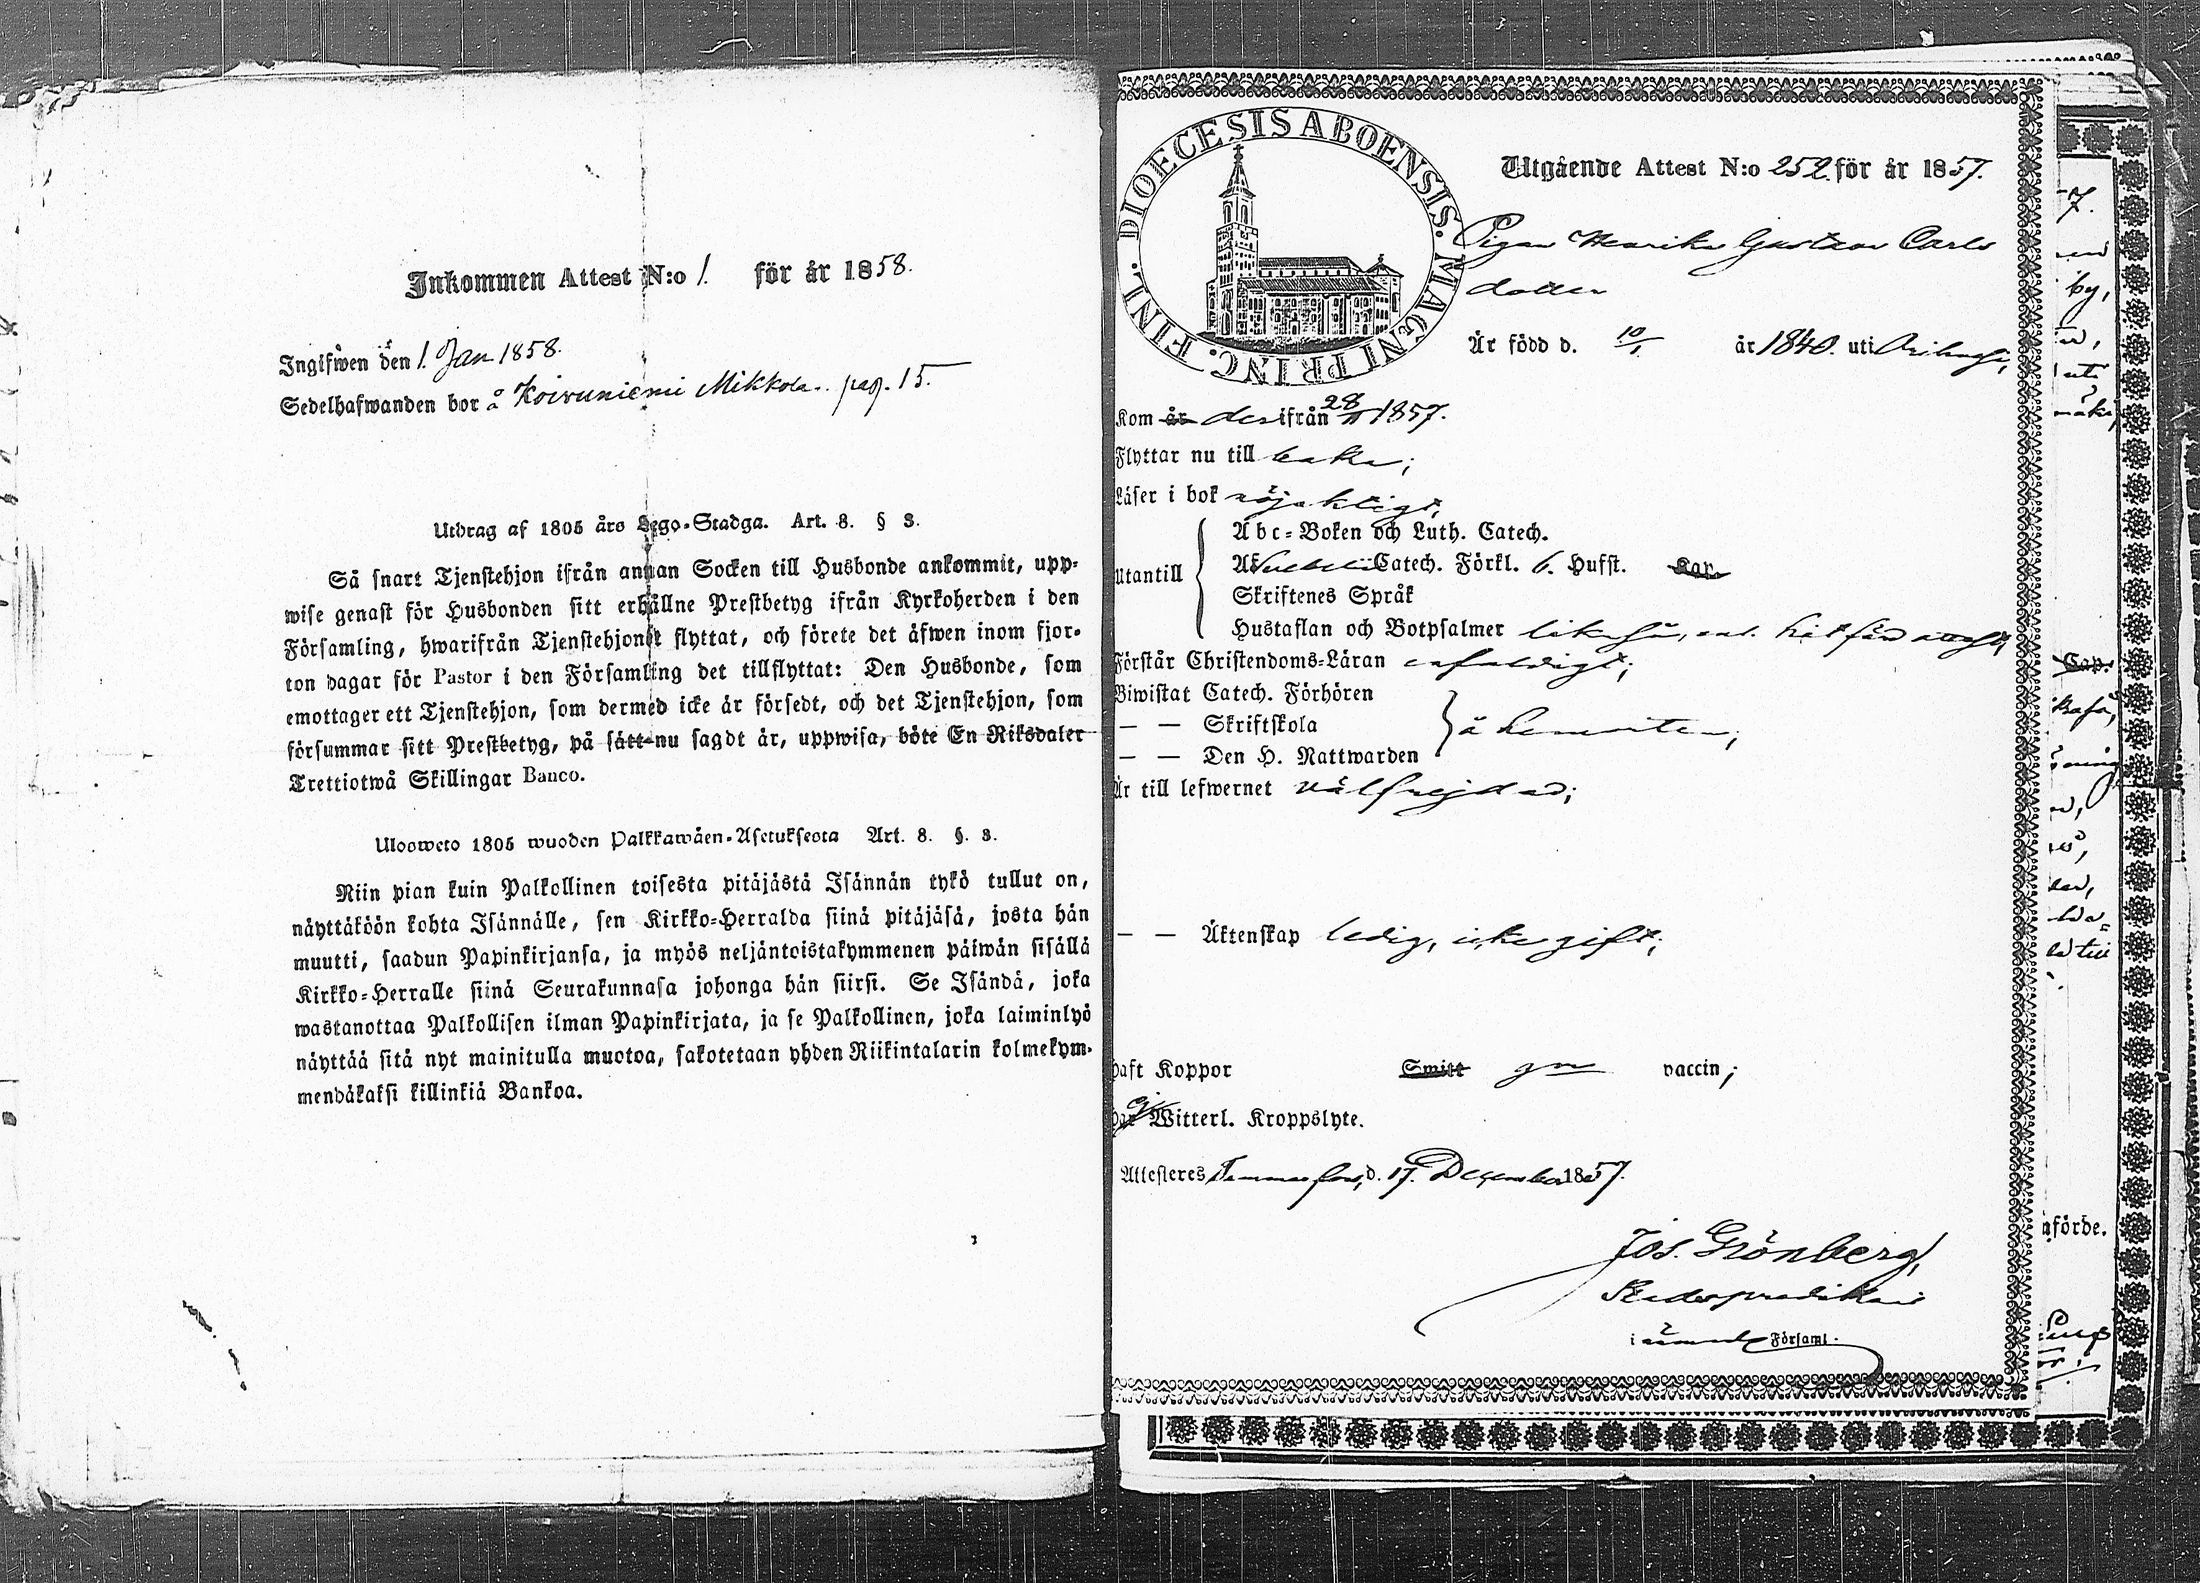 Inkommen Attest N:o 1. för år 1858.
Ingifwen den 1. Jan 1858.
Sedelhafwanden bor å Koivuniemi Mikkola. pag. 15.
Utdrag af 1805 års Lego-Stadga. Art. 8. § 3.
Så snart Tjenstehjon ifrån annan Socken till Husbonde ankommit, upp-
wise genast för Husbonden sitt erhållne Prestbetyg ifrån Kyrkoherden i den
Församling, hwarifrån Tjenstehjonet flyttat, och förete det äfwen inom fjor-
ton dagar för Pastor i den Församling det tillflyttat: Den Husbonde, som
emottager ett Tjenstehjon, som dermed icke är försedt, och det Tjenstehjon, som
försummar sitt Prestbetyg, på sätt nu sagdt är, uppwisa, böte En Riksdaler
Trettiotwå Skillingar Banco.
Ulosweto 1805 wuoden Palkkawäen-Asetuksesta Art. 8. §. 3.
Niin pian kuin Palkollinen toisesta pitäjästä Isännän tykö tullut on,
näyttäköön kohta Isännälle, sen Kirkko-Herralda siinä pitäjäsä, josta hän
muutti, saadun Papinkirjansa, ja myös neljäntoistakymmenen päiwän sisällä
Kirkko-Herralle siinä Seurakunnasa johonga hän siirsi. Se Isändä, joka
wastanottaa Palkollisen ilman Papinkirjata, ja se Palkollinen, joka laiminlyö
näyttää sitä nyt mainitulla muotoa, sakotetaan yhden Riikintalarin kolmekym-
mendäkaksi killinkiä Bankoa.
DIOECESIS ABOENSIS. MAGNI PRINC. FINL.
Utgående Attest N:o 252. för år 1857.
Pigan Henrika Gustava Carls
dotter
Är född d. 10/1. år 1840. uti
Kom år ifrån 28/11 1857.
Flyttar nu till baka;
Läser i bok nöjaktigt,
Abc-Boken och Luth. Catech.
Utantill Catech. Förkl. 6. Hufst. Kap.
Skriftenes Språk
Hustaflan och Botpsalmer
Förstår Christendoms-Läran enfaldigt;
Biwistat Catech. Förhören
— — Skriftskola å hemorten;
— — Den H. Nattwarden
Är till lefwernet välfrejdad;
— — Äktenskap ledig, icke gift;
haft Koppor Smitt gm vaccin;
har ej Witterl. Kroppslyte.
Attesteres Tammerfors, d. 17. December 1857.
Jos. Grönberg,
Stadspredikant
i Församl.
7.
by,
Cap.
nförde.